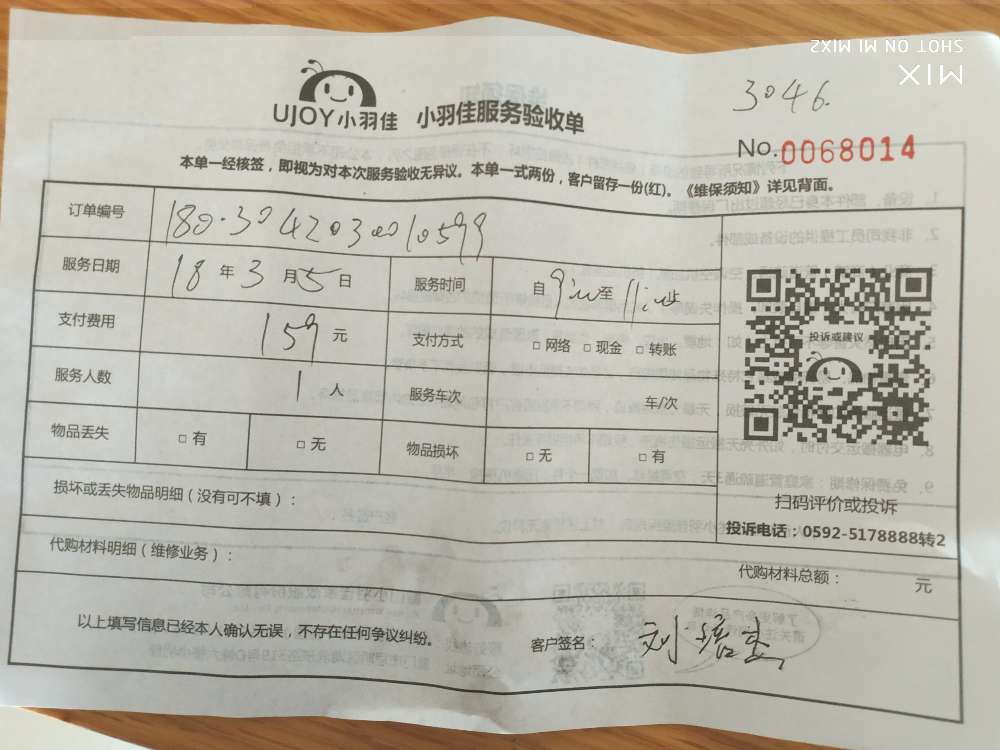 SHOT ON MI MIX2
MIX
3046.
UJOY小羽佳 小羽佳服务验收单
No.0068014
本单一经核签，即视为对本次服务验收无异议。本单一式两份，客户留存一份(红)。《维保须知》详见背面。
订单编号
服务日期 18 年 3 月 5 日 服务时间 自 至
支付费用 159 元 支付方式 □ 网络 □ 现金 □ 转账
服务人数 1 人 服务车次 车/次
物品丢失 □ 有 □ 无 物品损坏 □ 无 □ 有
投诉或建议
扫码评价或投诉
投诉电话：0592-5178888转2
损坏或丢失物品明细（没有可不填）：
代购材料明细（维修业务）：
代购材料总额： 元
以上填写信息已经本人确认无误，不存在任何争议纠纷。
客户签名：